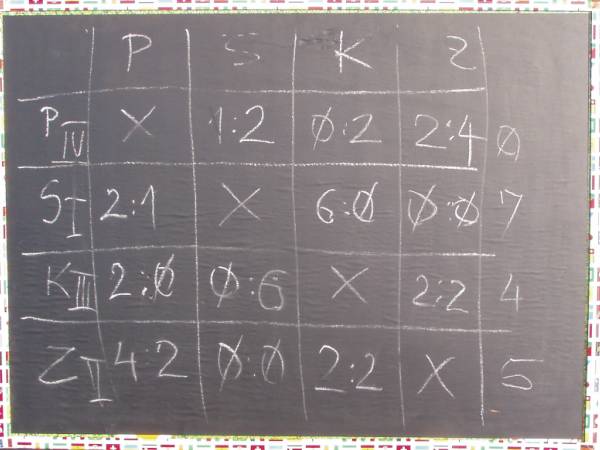 P S K Z
P IV X 1:2 0:2 2:4 0
S I 2:1 X 6:0 0:0 7
K III 2:0 0:6 X 2:2 4
Z II 4:2 0:0 2:2 X 5